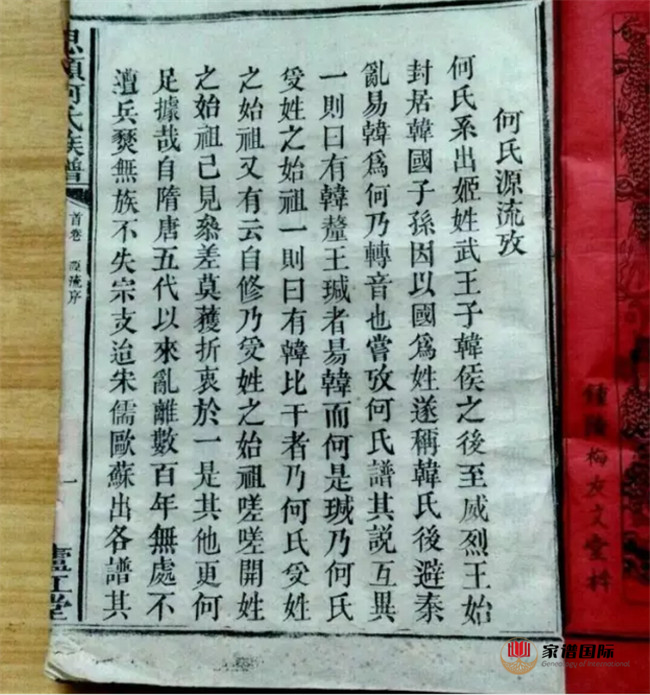 何氏源流攷
何氏系出姬姓武王子韓侯之後至威烈王始
封居韓國子孫因以國爲姓遂稱韓氏後避秦
亂易韓爲何乃轉音也嘗攷何氏譜其説互異
一則曰有韓釐王瑊者易韓而何是瑊乃何氏
受姓之始祖一則曰有韓比干者乃何氏受姓
之始祖又有云自修乃受姓之始祖嗟嗟開姓
之始祖已見叅差莫蒦折衷於一是其他更何
足據哉自隋唐五代以來亂離數百年無處不
遭兵燹無族不失宗支迨宋儒歐蘇出各譜其
思頴何氏族譜
首卷 源流序
一
廬江堂
梅友文堂梓
家谱国际
Genealogy of International